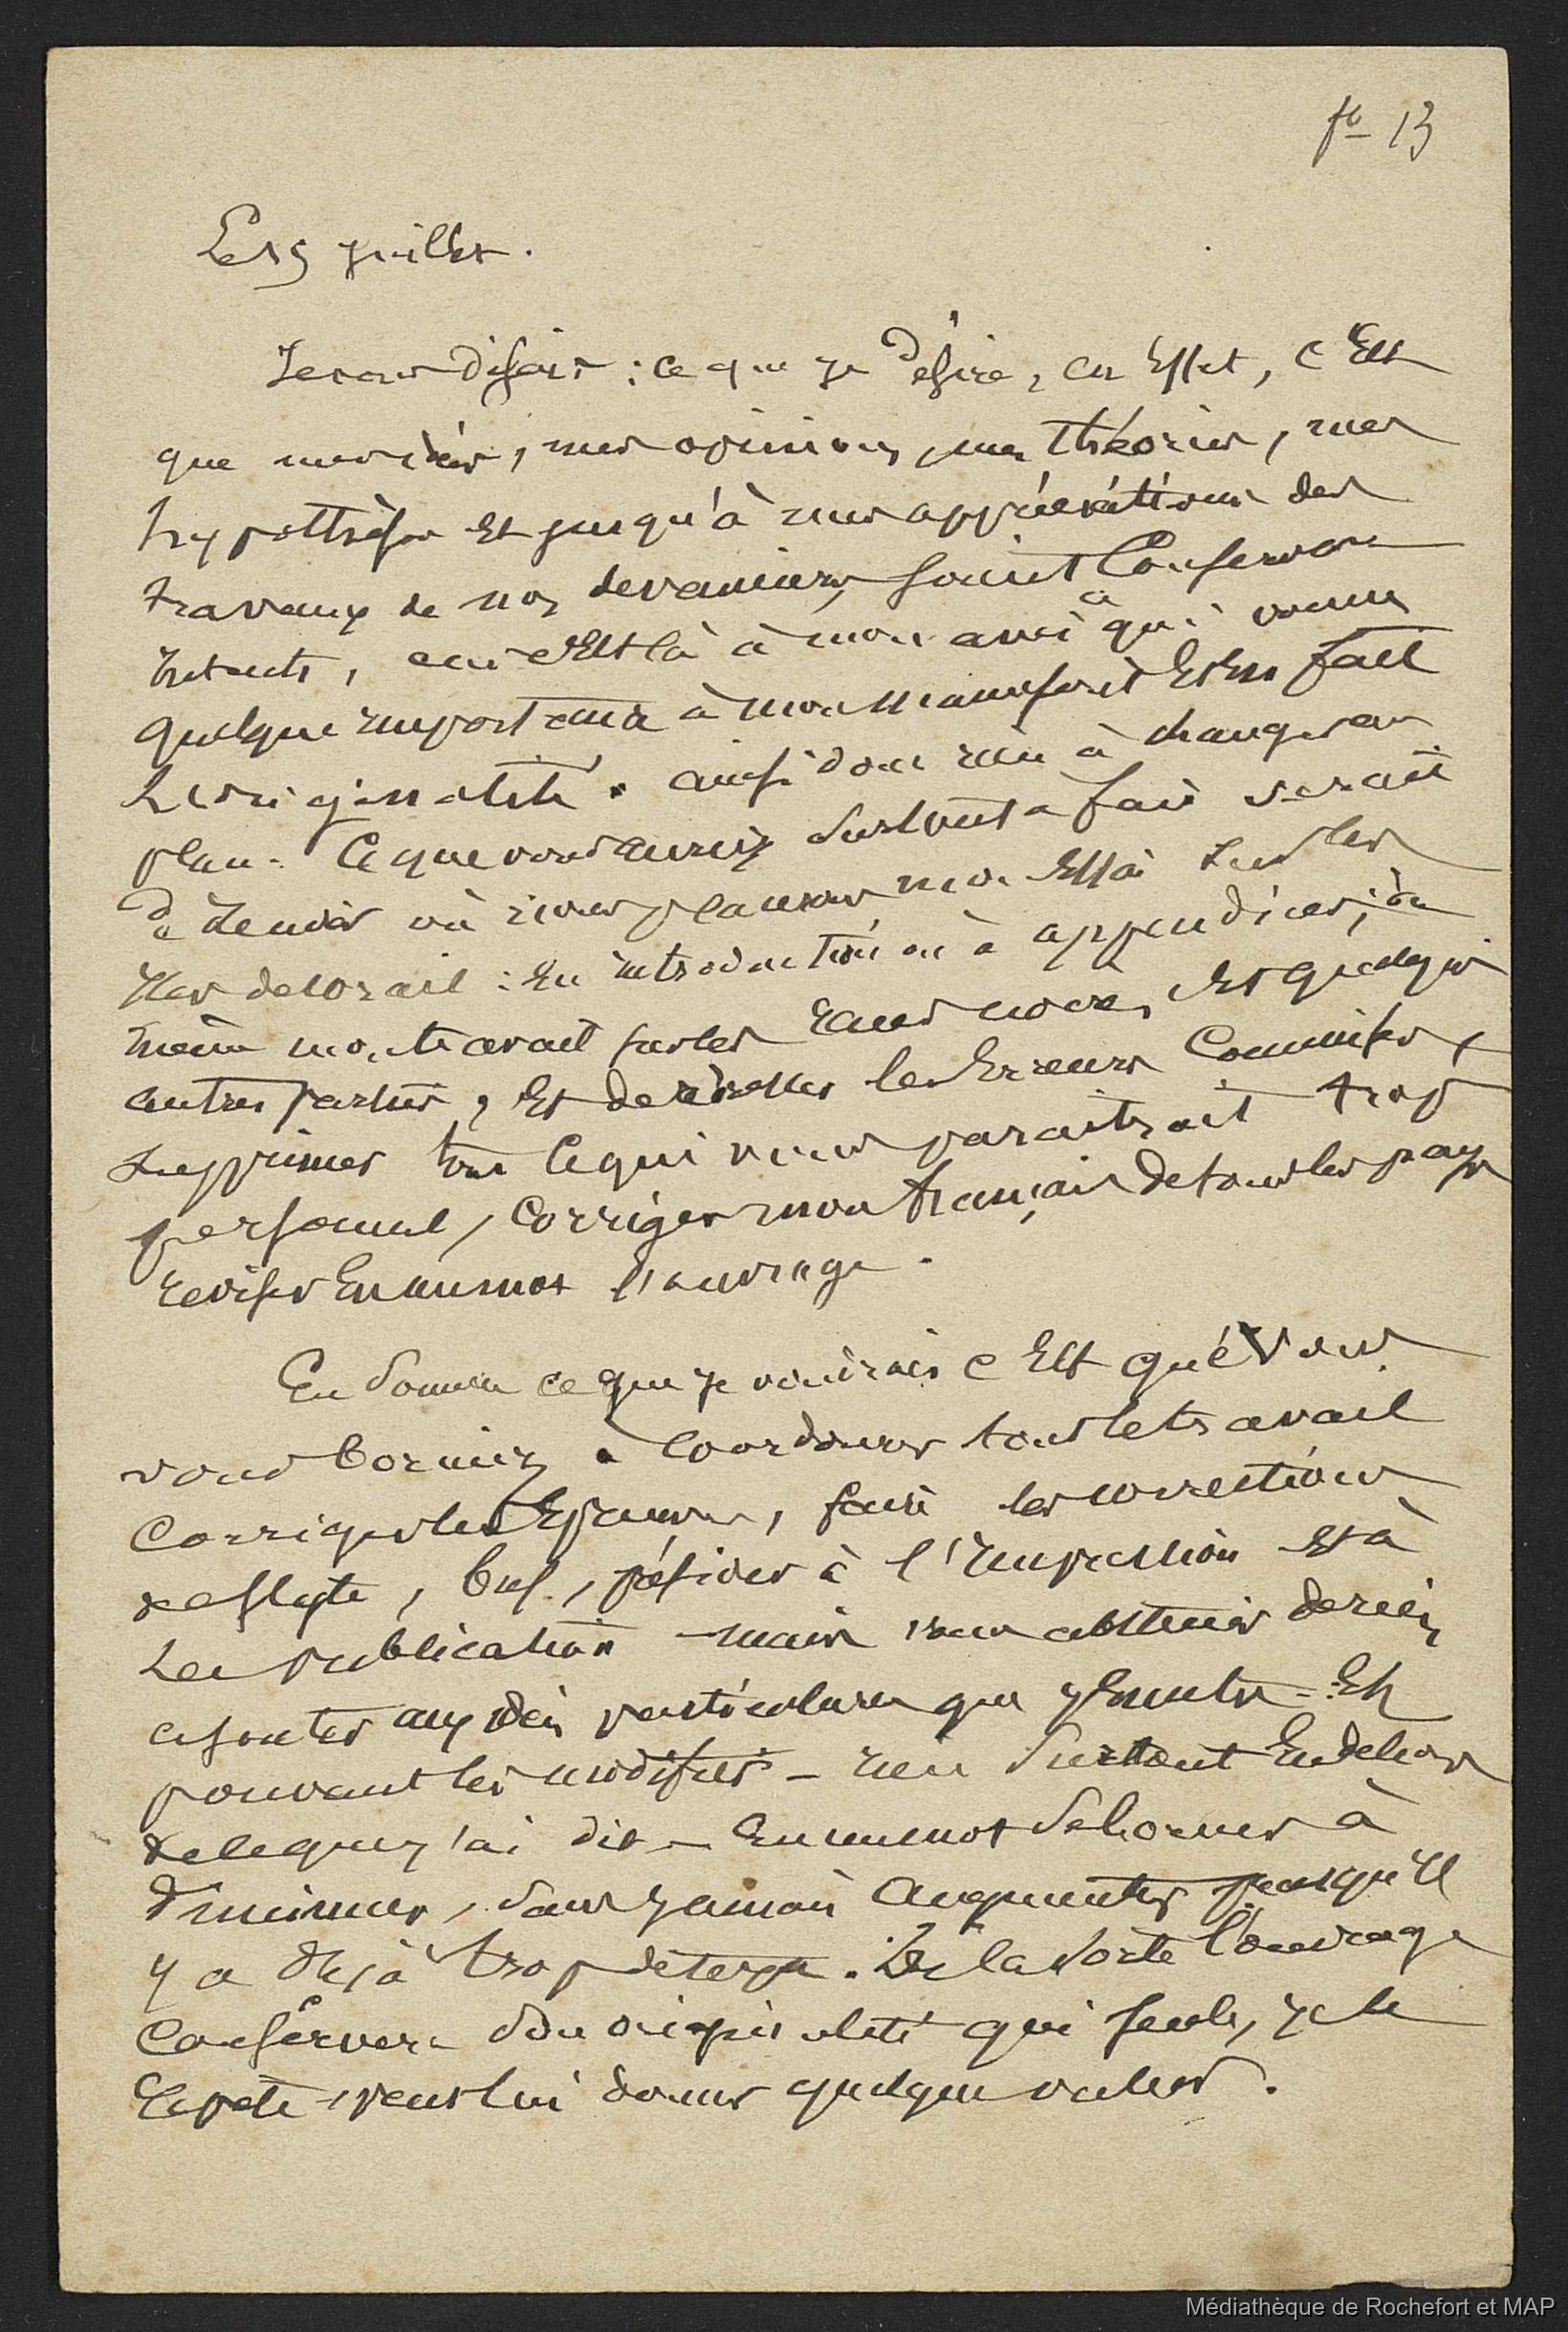 fo 13
Le 15 juillet.
Je vous disais : ce que je désire, en Effet, c'Est
que mes idées, mes opinions, mes théories, mes
hypothèses Et jusqu'à mes appréciations des
travaux de nos devanciers, soient Conservées
intacts, car c'Est là à mon avis ce qui donne
quelque importance à mon manuscrit Et En fait
l'originalité. ainsi donc rien à changer au
plan. Ce que vous auriez surtout a faire serait
de de voir où nous placerons mon Essai sur les
Iles de corail : En introduction ou à appendices, ou
même mon travail sur les races noires, Et quelques
autres parties, Et de redresser les Erreurs Commises,
supprimer tout Ce qui vous paraitrait trop
personnel, Corriger mon français de tous les pays
reviser En un mot l'ouvrage.
En somme ce que je voudrais c'Est que Vous
vous borniez a Coordonner tout le travail
Corriger les Epreuves, faire les corrections
de style, bref, présider à l'Impression Et à
la publication mais vous abstenir de rien
ajouter aux idées particulières que j'Emets - Et
pouvant les modifier - rien surtout En dehors
de ce que j'ai dit - En un mot se borner à
diminuer, sans jamais augmenter puisqu'il
y a déjà trop de texte. De la sorte l'ouvrage
Conservera son originalité qui seule, je le
répète, peut lui donner quelque valeur.
Médiathèque de Rochefort et MAP